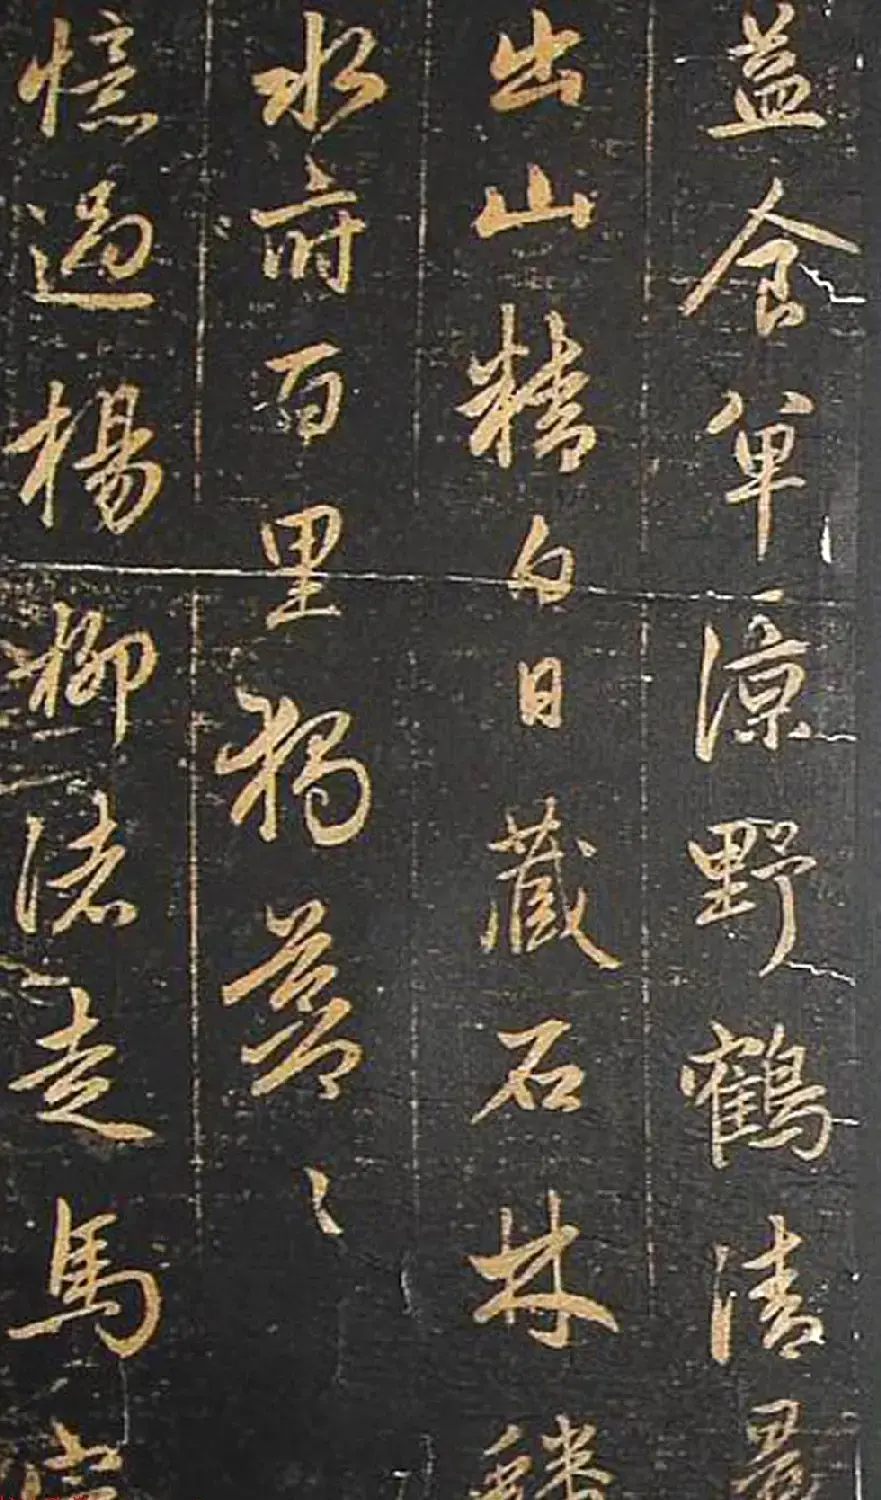 益食單涼野鶴清晨
出山精白日藏石林蟠
水府百里獨蒼〻
憶過楊柳渚走馬定